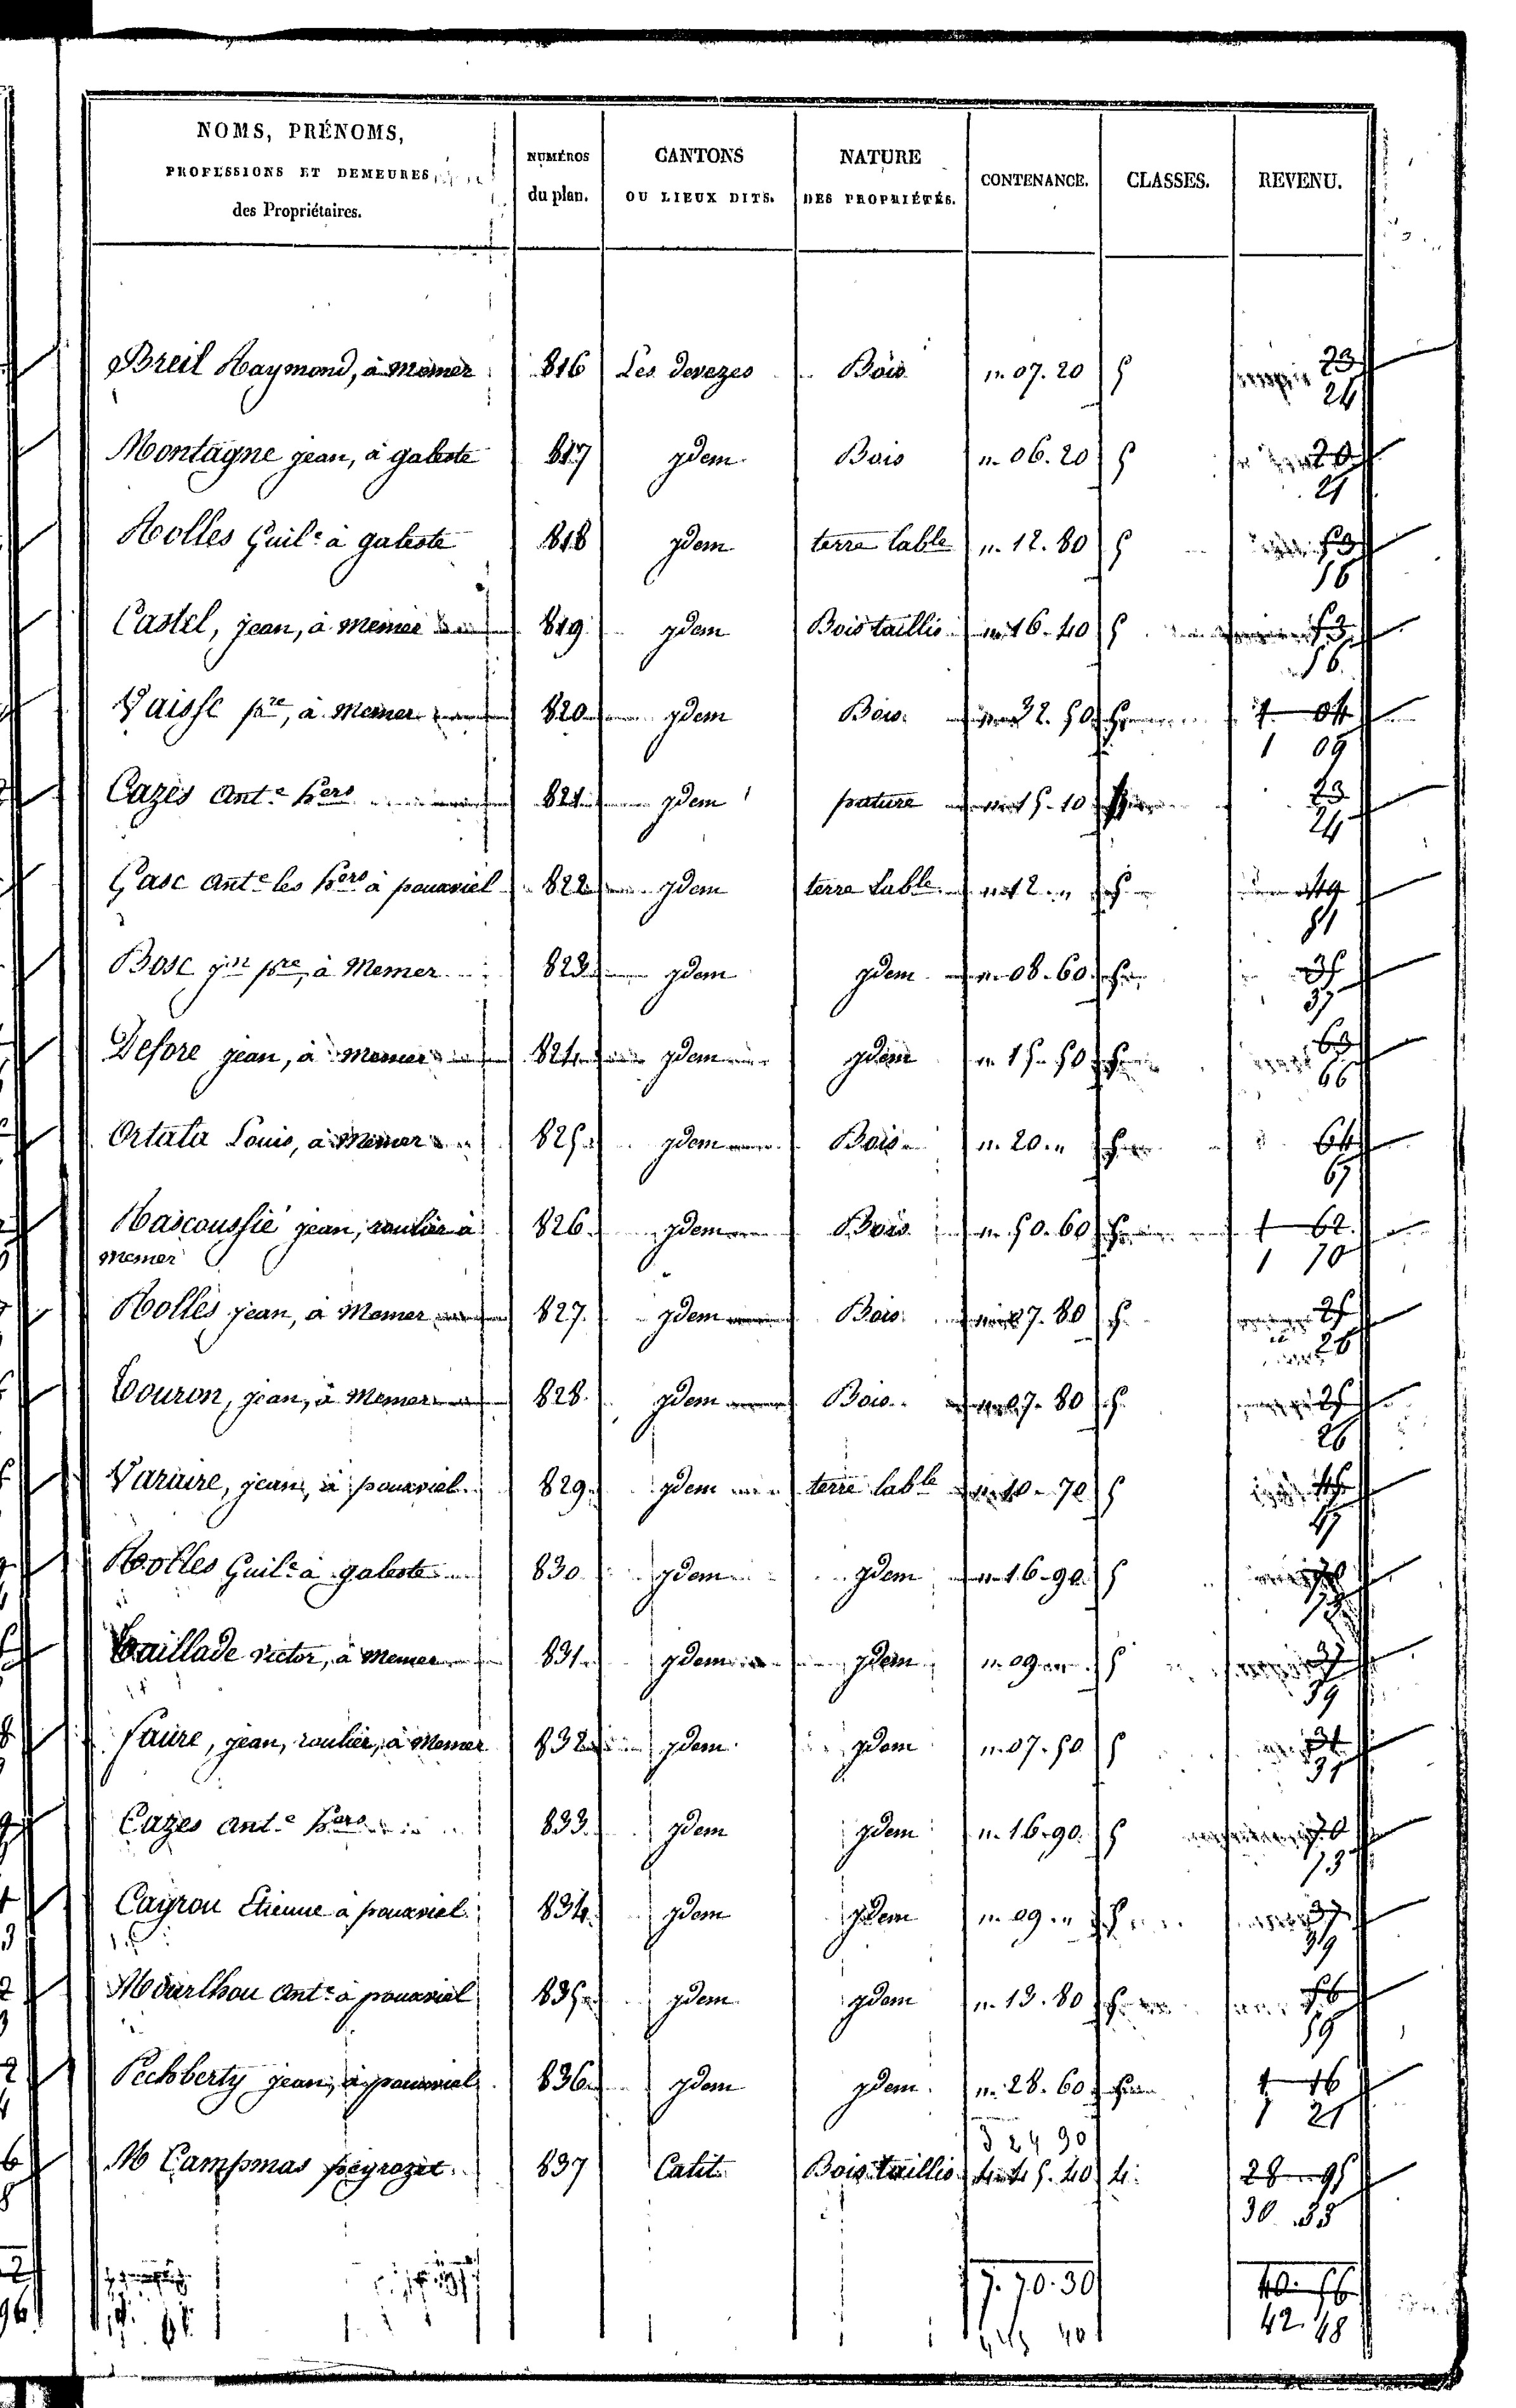 NOMS, PRÉNOMS,
PROFESSIONS ET DEMEURES
des Propriétaires.
NUMÉROS
du plan.
CANTONS
OU LIEUX DITS.
NATURE
DES PROPRIÉTÉS.
CONTENANCE.
CLASSES.
REVENU.
Breil Raymond, à Memer 816 Les devezes Bois 07. 20 5 23
24
Montagne jean, à galeste 817 ydem Bois 06. 20 5 20
21
Rolles Guil.e à galeste 818 ydem terre lable 12. 80 5 53
56
Castel, jean, à Memer 819 ydem Bois taillis 16. 40 5 53
56
Vaisse pre, à Memer 820 ydem Bois 32. 50 5 1 04
1 09
Cazes Ant.e hers 821 ydem pature 15. 10 23
24
Gasc Ant.e les hers à pouxviel 822 ydem terre Lable 12. „ 5 49
51
Bosc jn pre, à Memer 823 ydem ydem 08. 60 5 35
37
Defore jean, à Memer 824 ydem ydem 15. 50 5 63
66
Ortala Louis, à Memer 825 ydem Bois 20. „ 5 64
67
Rascoussié jean, roulier à 826 ydem Bois 50. 60 5 1 62
Memer 1 70
Rolles jean, à Memer 827 ydem Bois 07. 80 5 25
26
Couron, jean, à Memer 828 ydem Bois 07. 80 5 25
26
Varaire, jean, à pouxviel 829 ydem terre lable 10. 70 5 45
47
Rolles Guil.e à galeste 830 ydem ydem 16. 90 5 70
73
Taillade victor, à Memer 831 ydem ydem 09 5 37
39
Faure, jean, roulier, à Memer 832 ydem ydem 07. 50 5 31
31
Cazes Ant.e hers 833 ydem ydem 16. 90. 5 70
73
Cayrou Etienne à pouxviel 834 ydem ydem 09. „ 5 37
39
Mourlhou Ant.e à pouxviel 835 ydem ydem 13. 80 5 56
59
Pechberty jean, à pouxviel 836 ydem ydem 28. 60 5 1 16
1 21
3 24 90
M Campmas peyrozet 837 Catit Bois taillis 4. 45. 40 4. 28 95
30 33
7. 70. 30 40. 56
42. 48